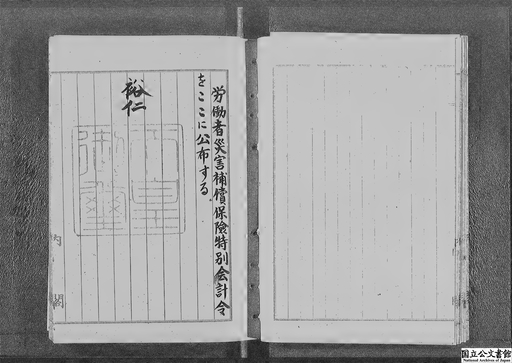 労働者災害補償保険特別会計令
をここに公布する
裕仁
天皇
御璽
内閣
国立公文書館
National Archives of Japan